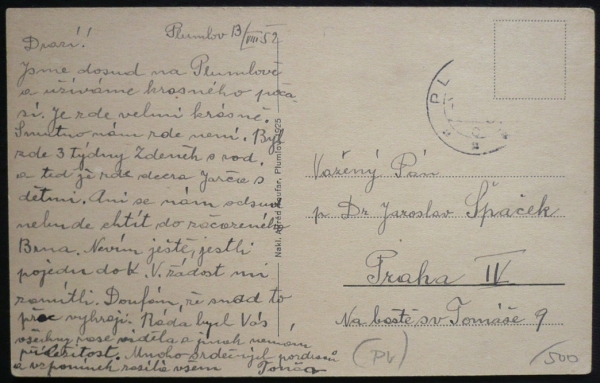 Plumlov 13/VIII 52
Drazí!
Jsme dosud na Plumlově
a užíváme krásného poča-
sí. Je zde velmi krásně.
Smutno nám zde není. Byl
zde 3 týdny Zdeněk s rod.
a teď je zde dcera s
dětmi. Ani se nám odsud
nebude chtít do
Brna. Nevím ještě, jestli
pojedu do K. V. žádost mi
zamítli. Doufám, že snad to
přec vyhraji. Ráda bych Vás
všechny zase viděla a jinak nemám
příležitost. Mnoho srdečných pozdravů
a vzpomínek zasílá všem
Nakl. Alfréd Plumlov 1925
PL
Vážený Pán
p. Dr Jaroslav Špaček
Praha IV
Na baště sv Tomáše 9
(PV)
/500